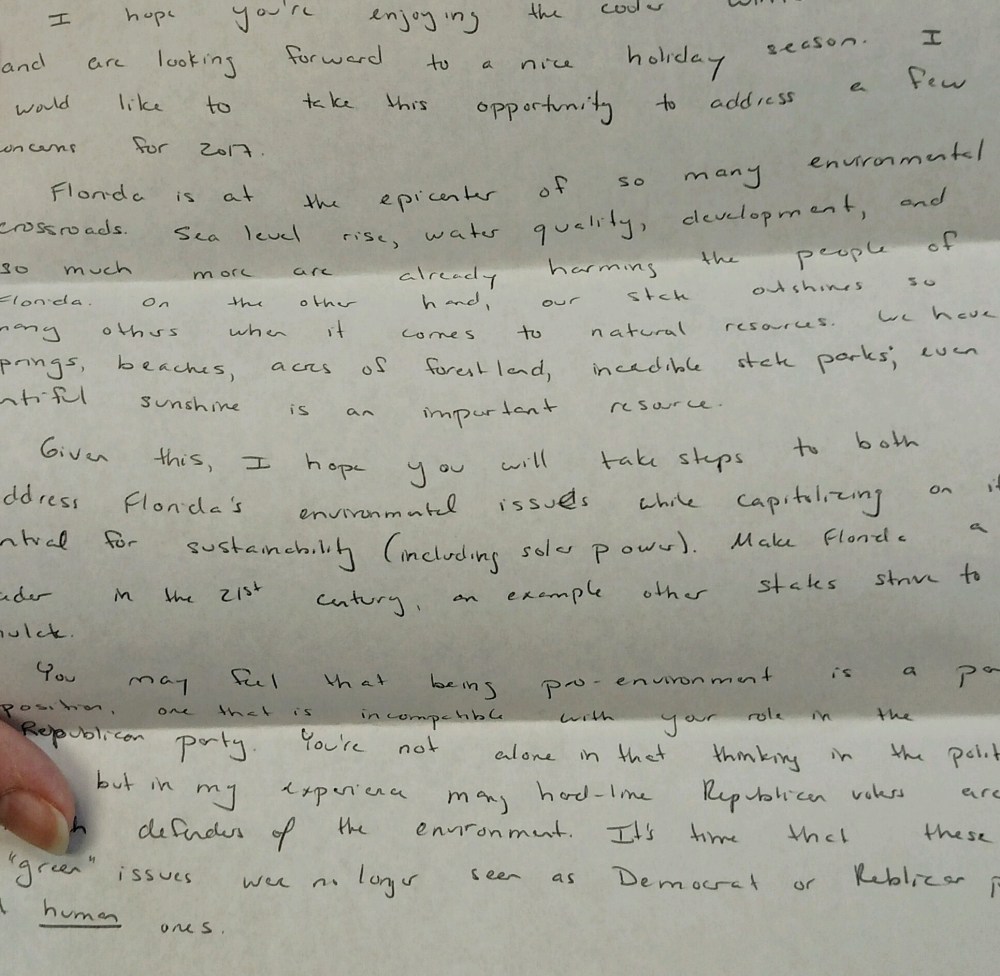 I hope you're enjoying the cooler
and are looking forward to a nice holiday season. I
would like to take this opportunity to address a few
oncerns for 2017.
Florida is at the epicenter of so many environmental
crossroads. Sea level rise, water quality, development, and
so much more are already harming the people of
Florida. On the other hand, our state outshines so
many others when it comes to natural resources. We have
prings, beaches, acres of forest land, incredible state parks; even
ntiful sunshine is an important resource.
Given this, I hope you will take steps to both
ddress Florida's environmental issues while capitalizing on it
ntial for sustainability (including solar power). Make Florida a
ader in the 21st century, an example other states strive to
mulate.
You may feel that being pro-environment is a pa
position, one that is incompatible with your role in the
Republican party. You're not alone in that thinking in the polit
but in my experience many hard-line Republican voters are
h defenders of the environment. It's time that these
"green" issues were no longer seen as Democrat or Reblican p
human ones.